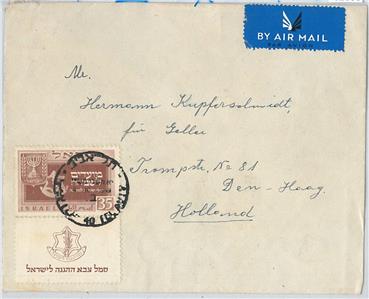 BY AIR MAIL
PAR AVION
Mr.
Hermann Kupferschmidt,
für Geller
Trompstr. No 81
Den-Haag,
Holland
ישראל
ISRAEL
35
תל אביב
סמל צבא ההגנה לישראל